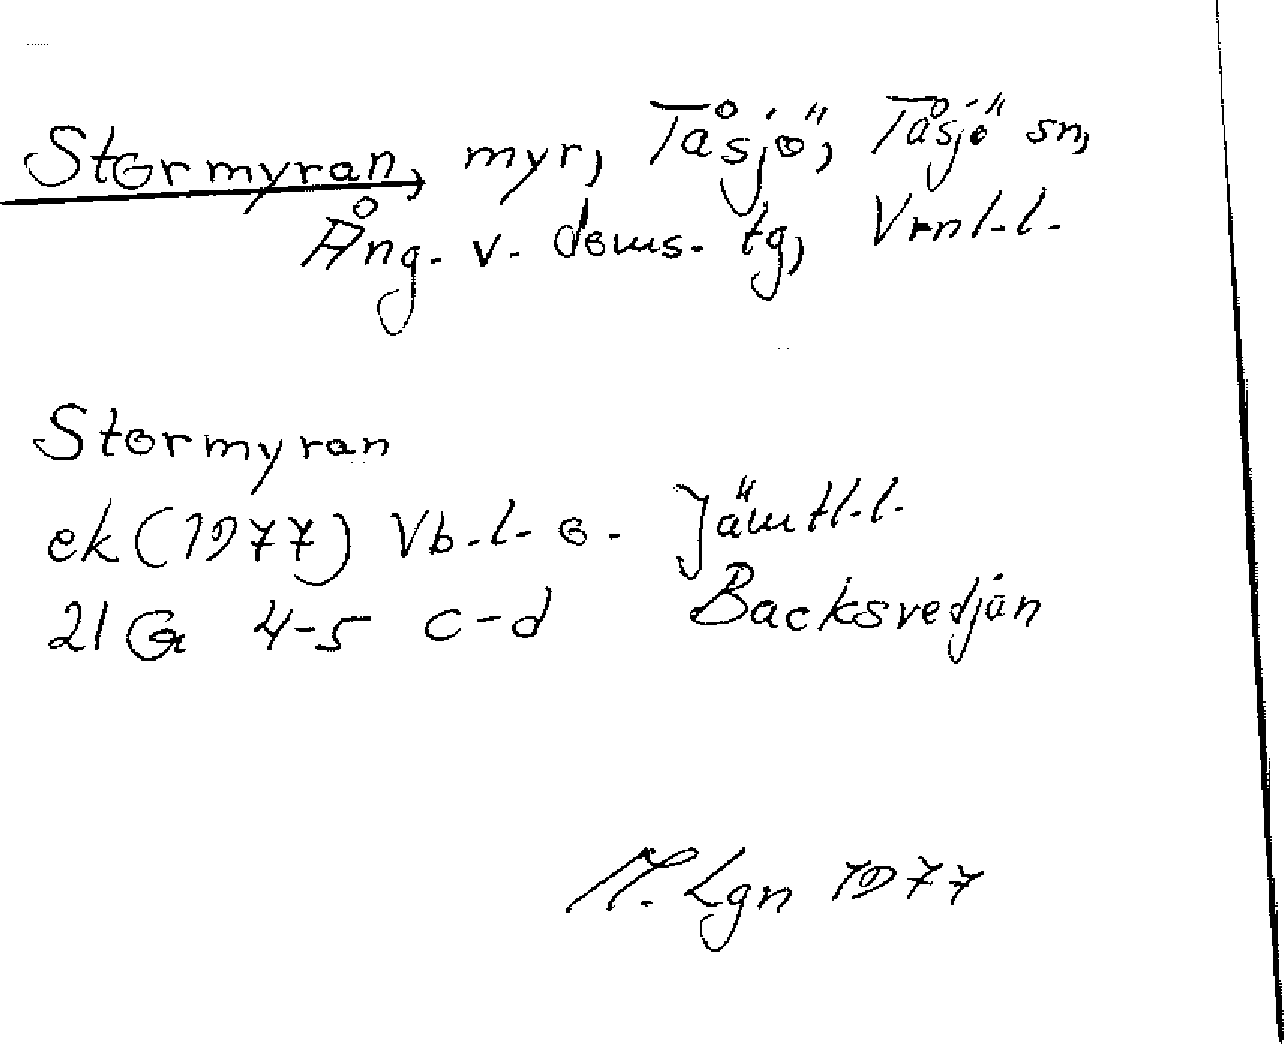 Stormyran, myr, Tåsjö, Tåsjö sn,
Ång. v. doms. tg, Vrnl.l.
Stormyran
ek (1977) Vb.l. o. Jämtl.l.
21 G 4-5 c-d Backsvedjan
M. Lgn 1977